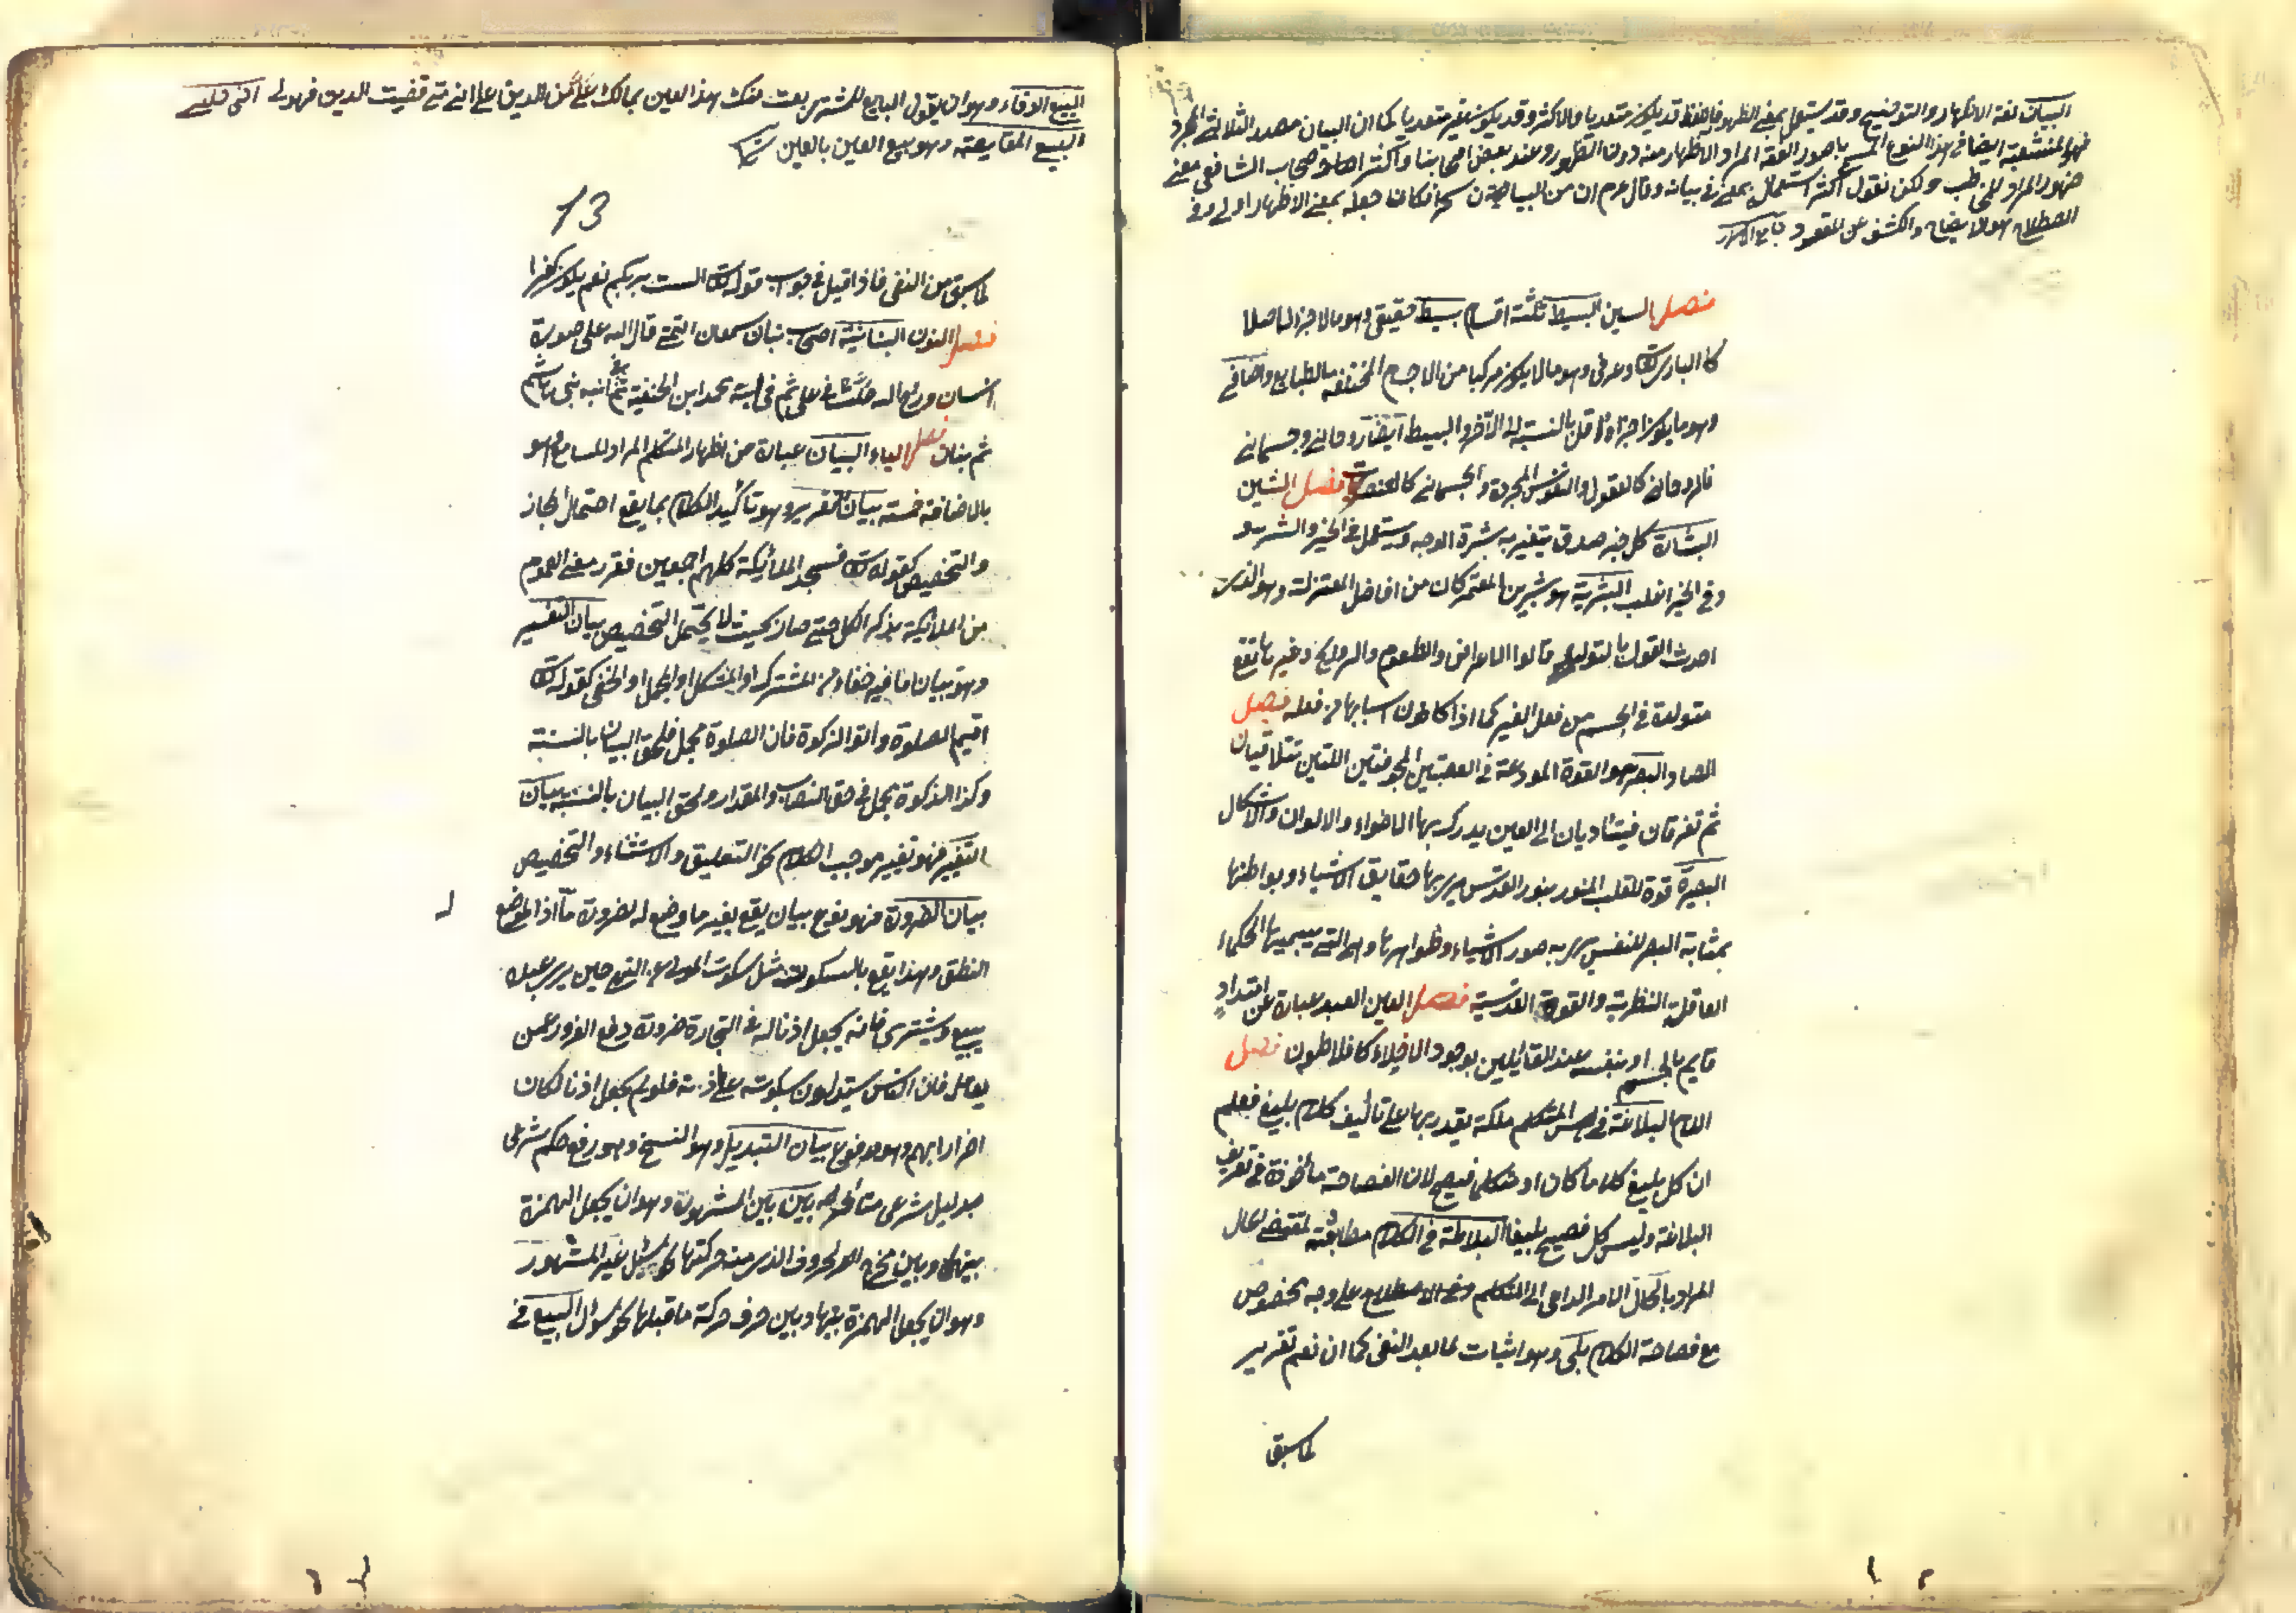 البيان لغة الاظهار والتوضيح وقد يستعمل بمعنى الظهور فاللفظ قد يكون متعديا والاكثر وقد يكون غير متعد كما ان البيان مصدر الثلاثي المجرد
ايضا في هذا النوع باصول الفقه المراد الاظهار منه دون الظهور وعند بعض اصحابنا واكثر اصحاب الشافعي معنى
ظهور المراد للمخاطب ولكن نقول اكثر استعماله بمعنى وقال عم ان من البيان لسحرا فكان جعله بمعنى الاظهار اولى وفي
الاصطلاح هو الايضاح والكشف عن المقصود
فصل السين البسيط ثلثة اقسام بسيط حقيقي وهو ما لا جزء له اصلا
كالباري تعالى وعرفي وهو ما لا يكون مركبا من الاجسام المختلفة بالطبايع واضافي
وهو ما يكون اجزاؤه اقل بالنسبة الى الآخر والبسيط ايضا روحاني وجسماني
فالروحاني كالعقول والنفوس المجردة والجسماني كالعناصر فصل الشين
البشارة كل خبر صدق يتغير به بشرة الوجه ويستعمل في الخير والشر وهو
وفي الخير اغلب البشرية هو بشر بن المعتمر كان من افاضل المعتزلة وهو الذي
احدث القول بالتوليد قالوا الاعراض والطعوم والروايح وغيرها تقع
متولدة في الجسم من فعل الغير كما اذا كان اسبابها من فعله فصل
الصاد البصر هو القوة المودعة في العصبتين المجوفتين اللتين تتلاقيان
ثم تفرقان فيتاديان الى العين يدرك بها الاضواء والالوان والاشكال
البصيرة قوة للقلب المنور بنور القدس يرى بها حقايق الاشياء وبواطنها
بمثابة البصر للنفس يرى به صور الاشياء وظواهرها وهي التي يسميها الحكماء
العاقلة النظرية والقوة القدسية فصل العين البعد عبارة عن امتداد
قايم بالجسم او بنفسه عند القايلين بوجود الخلاء كافلاطون فصل
اللام البلاغة في المتكلم ملكة يقدر بها على تأليف كلام بليغ فعلم
ان كل بليغ كلاما كان او متكلما فصيح لان الفصاحة مأخوذة في تعريف
البلاغة وليس كل فصيح بليغا البلاغة في الكلام مطابقته لمقتضى الحال
المراد بالحال الامر الداعي الى التكلم على وجه مخصوص
مع فصاحة الكلام بلى وهو اثبات لما بعد النفي كما ان نعم تقرير
لما سبق
البيع الوفاء وهو ان يقول البايع للمشتري بعت منك هذا العين بما لك علي من الدين على اني متى قضيت الدين فهو لي
البيع المقايضة وهو بيع العين بالعين
13
لما سبق من النفي فاذا قيل في جواب قوله تعالى الست بربكم نعم يكون كفرا
فصل النون البنانية اصحاب بنان سمعان التيمي قال الله على صورة
انسان وروح الله حلت في علي ثم في ابنه محمد ابن الحنفية ثم في ابنه ابي هاشم
ثم بنان فصل الياء البيان عبارة عن اظهار المتكلم المراد للسامع وهو
بالاضافة خمسة بيان التقرير وهو تأكيد الكلام بما يقطع احتمال المجاز
والتخصيص كقوله تعالى فسجد الملائكة كلهم اجمعين فقرر معنى العموم
من الملائكة بذكر الكل حتى صار بحيث لا يحتمل التخصيص بيان التفسير
وهو بيان ما فيه خفاء من المشترك او المشكل او المجمل او الخفي كقوله تعالى
اقيموا الصلوة وآتوا الزكوة فان الصلوة مجمل فلحق البيان بالسنة
وكذا الزكوة مجمل في حق النصاب والمقدار ولحق البيان بالسنة بيان
التغيير فهو تغيير موجب الكلام نحو التعليق والاستثناء والتخصيص
بيان الضرورة فهو نوع بيان يقع بغير ما وضع له لضرورة ما اذ الموضوع
النطق وهذا يقع بالسكوت مثل سكوت المولى عن النهي حين يرى عبده
يبيع ويشتري فانه يجعل اذنا له في التجارة ضرورة دفع الغرور عمن
يعامله فان الناس يستدلون بسكوته على اذنه فلو لم يجعل اذنا لكان
اضرارا بهم وهو مدفوع بيان التبديل وهو النسخ وهو رفع حكم شرعي
بدليل شرعي متأخر بين بين المشهورة وهو ان يجعل الهمزة
بينها وبين مخرج الحروف الذي منه حركتها نحو سئل غير المشهور
وهو ان يجعل الهمزة بينها وبين حرف حركة ما قبلها نحو سؤال البيع في